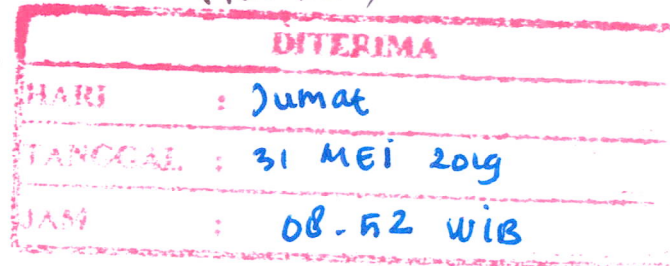 DITERIMA
HARI : Jumat
TANGGAL : 31 MEI 2019
JAM : 08.52 WIB